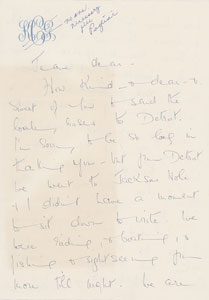 dear -
How kind & dear &
sweet of you to send the
to Detroit.
I'm sorry to be so long in
thanking you - but from Detroit
we went to Jackson Hole
& I didn't have a moment
to sit down to write. We
were riding & boating, &
fishing & sightseeing from
morn till night. We are